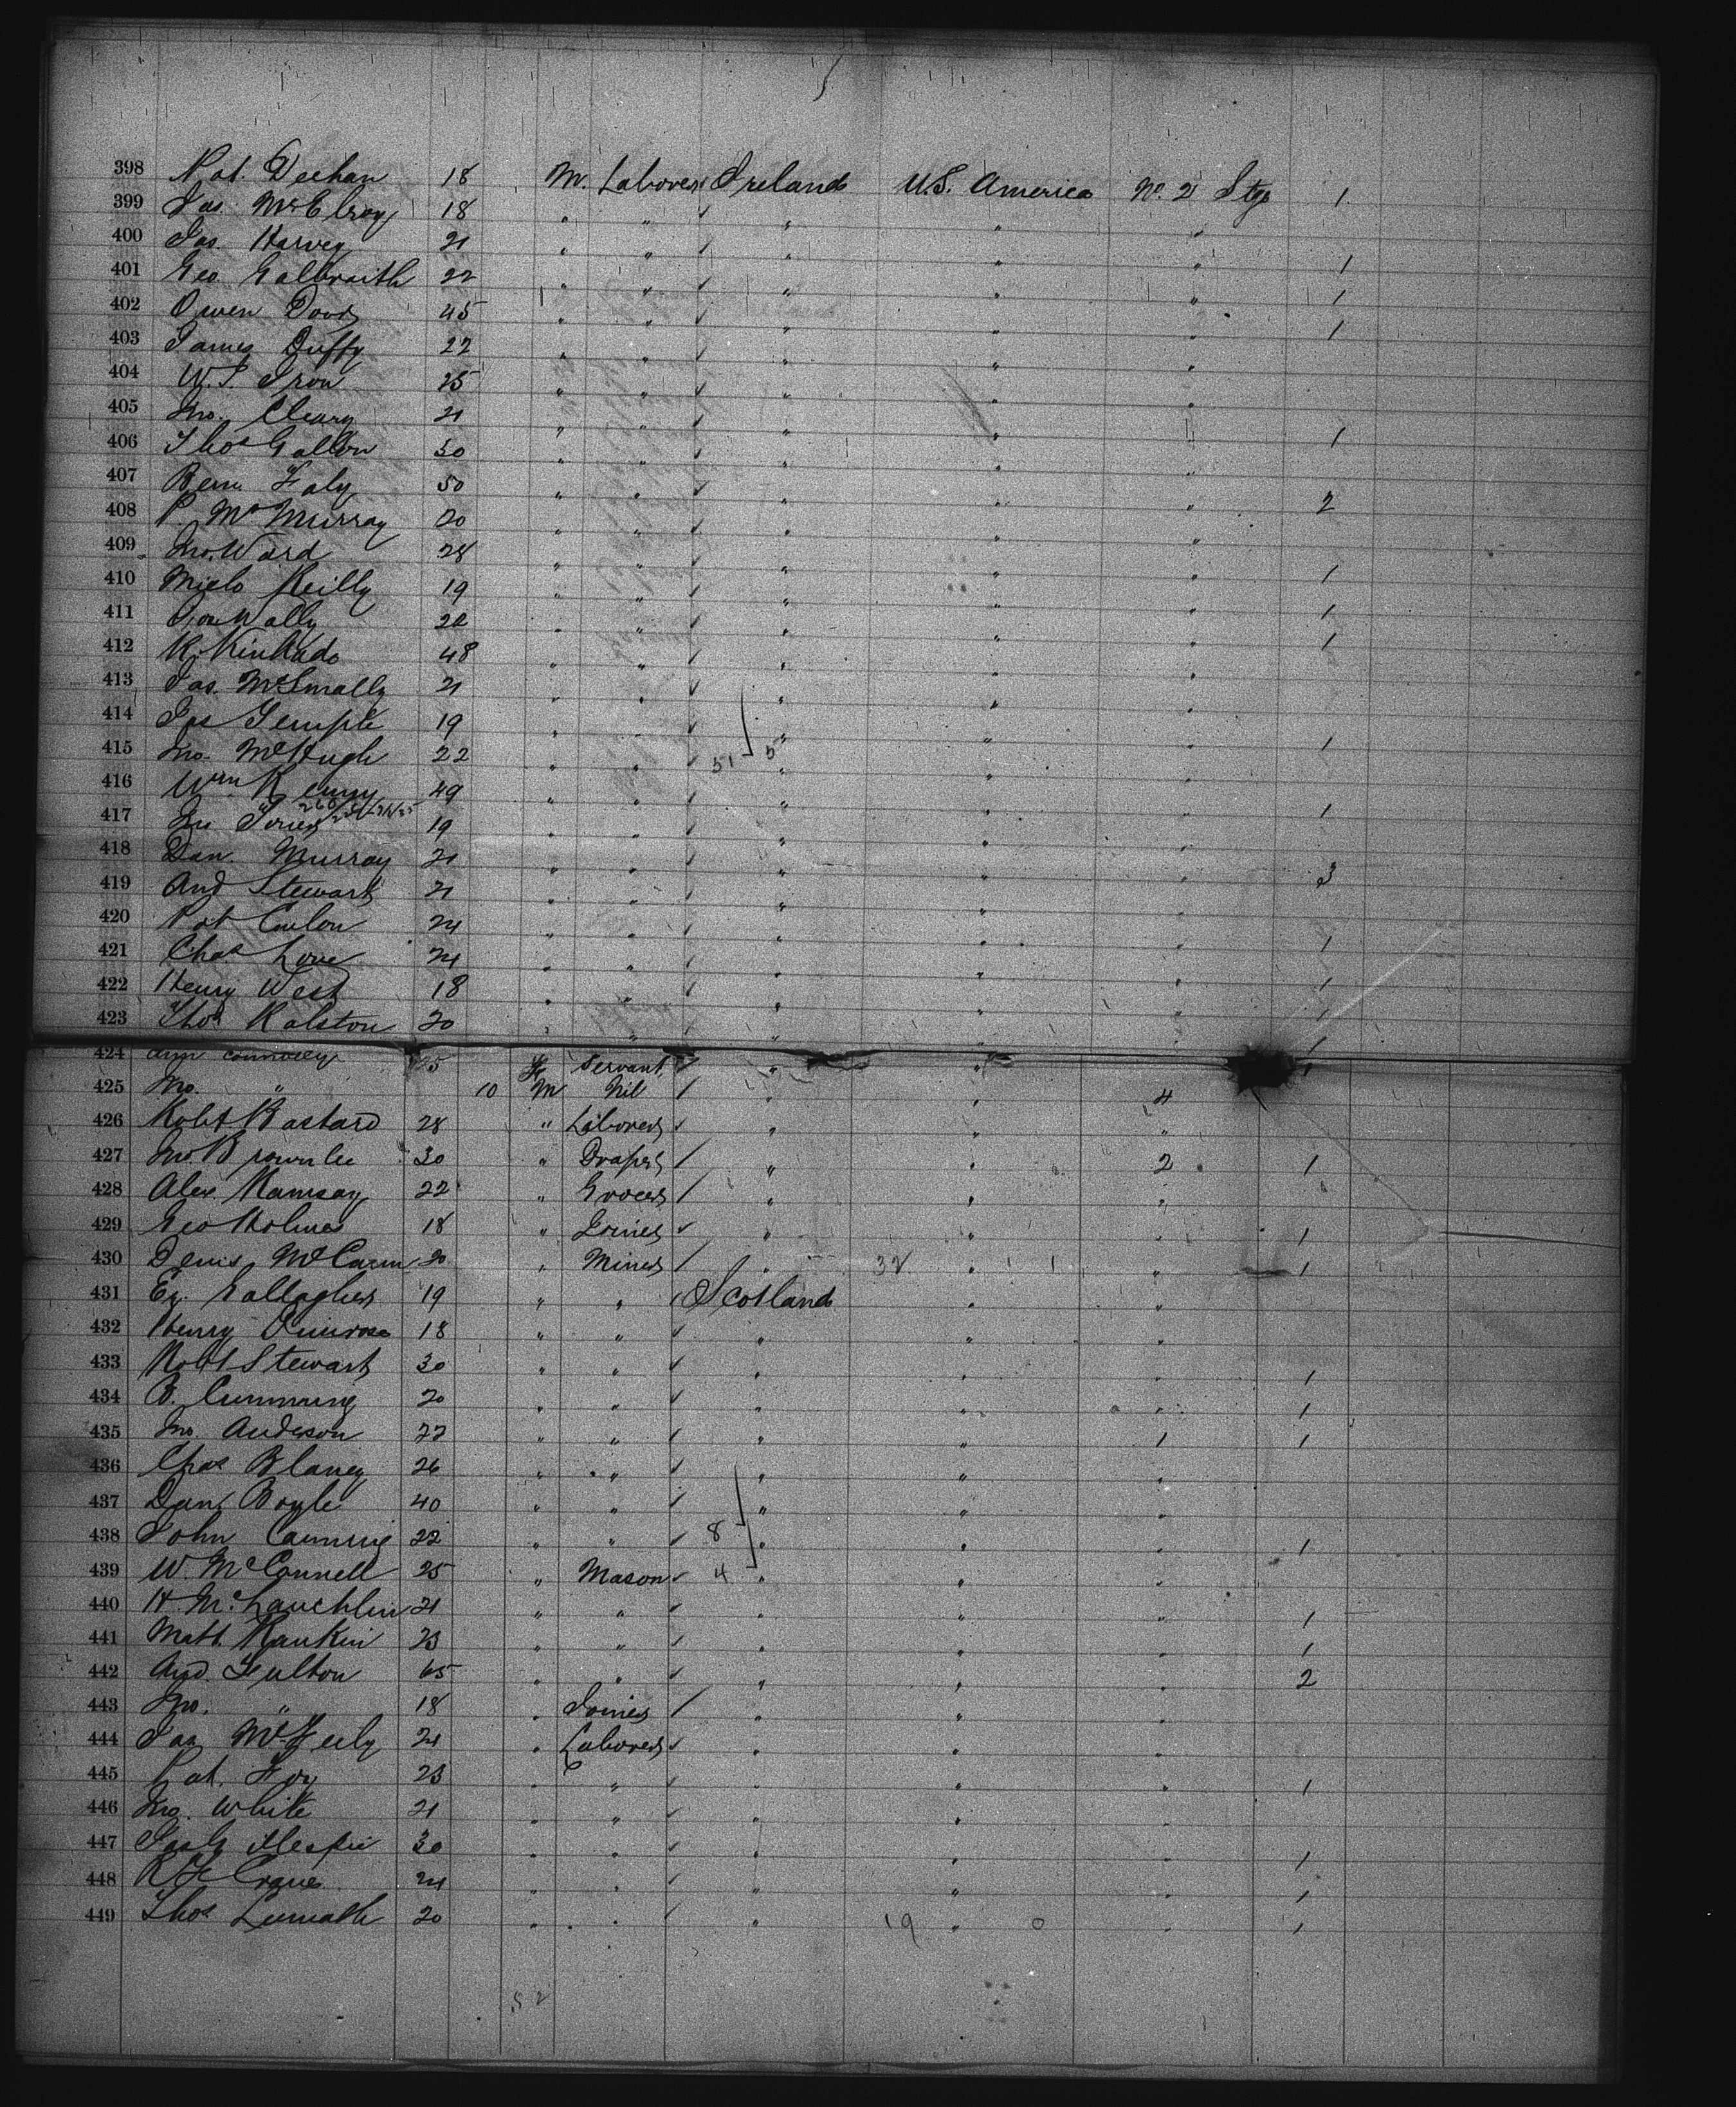 398 Pat. Deehan 18 M. Laborer Ireland U.S. America No. 2 Stge 1
399 Jas. McElroy 18 " " " " "
400 Jas. Harvey 21 " " " " " 1
401 Geo Galbraith 22 " " " " " 1
402 Owen Doody 45 " " " " " 1
403 James Duffy 22 " " " " "
404 W. J. Iron 25 " " " " "
405 Jno. Cleary 21 " " " " " 1
406 Thos Gallon 30 " " " " "
407 Bern. Faly 50 " " " " " 2
408 P. McMurray 20 " " " " "
409 Jno. Ward 28 " " " " " 1
410 Michl Reilly 19 " " " " " 1
411 Wally 22 " " " " " 1
412 R. Kinkado 48 " " " " "
413 Jas. McSmally 21 " " " " "
414 Jas Temple 19 " " " " " 1
415 Jno. McHugh 22 " " 51 5 " " "
416 Wm Kenny 49 " " " " " 1
417 Jno 19 " " " " "
418 Dan. Murray 21 " " " " " 3
419 And Stewart 21 " " " " "
420 Pat Conlon 24 " " " " " 1
421 Chas Love 24 " " " " " 1
422 Henry West 18 " " " " " 1
423 Thos Ralston 20 " " " " " 1
424 Ann Connolly 25 F Servant " " 1
425 Jno. " 10 M Nil " " 4
426 Robt Bastard 28 " Laborer " " "
427 Jno. Brownlee 30 " Draper " " 2 1
428 Alex Ramsay 22 " Grocer " " "
429 Geo Holmes 18 " Joiner " " " 1
430 Denis McCann 20 " Miner " 32 " 1 " 1
431 Gallagher 19 " " Scotland " "
432 Henry Primrose 18 " " " " "
433 Robt Stewart 30 " " " " " 1
434 B. Cumming 20 " " " " " 1
435 Jno. Anderson 22 " " " " 1 1
436 Chas Blaney 26 " " " " "
437 Danl Boyle 40 " " " " "
438 John Canning 22 " " 8 " " " 1
439 W. McConnell 25 " Mason 4 " " "
440 H. McLauchlin 21 " " " " " 1
441 Matt. Rankin 23 " " " " " 1
442 And. Fulton 65 " " " " " 2
443 Jno. " 18 " Joiner " " "
444 Jas McFeely 21 " Laborer " " "
445 Pat. Foy 23 " " " " " 1
446 Jno. White 21 " " " " "
447 Jas Gillespie 30 " " " " " 1
448 R H Crane 24 " " " " " 1
449 Thos 20 " " " 19 " 0 " 1
52